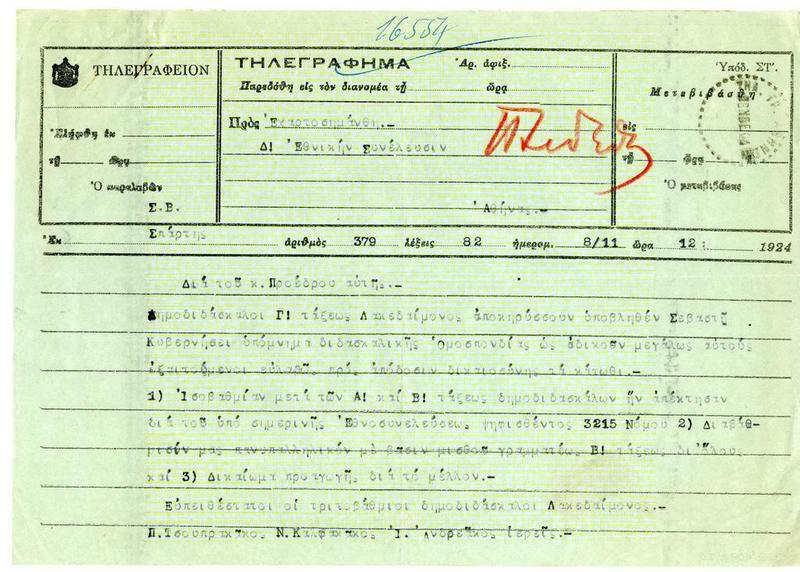 16554
ΤΗΛΕΓΡΑΦΕΙΟΝ
ΤΗΛΕΓΡΑΦΗΜΑ
Ἀρ. ἀφιξ.
Ὑπόδ. ΣΤ'.
Παρεδόθη εἰς τὸν διανομέα τῇ ὥρα
Μετεβιβάσθη
Ἐλήφθη ἐκ
Πρὸς Ἑκαρτοσημάνθη.—
εἰς
τῇ ὥρα
Δ! Ἐθνικήν Συνέλευσιν
τῇ ὥρα
Ὁ παραλαβών
Ὁ μεταβιβάσας
Σ.Β.
Ἀθήνας.—
Ἐκ Σπάρτης ἀριθμὸς 379 λέξεις 82 ἡμερομ. 8/11 ὥρα 12 1924
Διά τοῦ κ. Προέδρου αὐτῆς.—
Δημοδιδάσκαλοι Γ! τάξεως Λακεδαίμονος ἀποκηρύσσουν ὑποβληθέν Σεβαστῇ
Κυβερνήσει ὑπόμνημα διδασκαλικῆς ὁμοσπονδίας ὡς ἀδικοῦν μεγάλως αὐτούς
ἐξαιτούμενοι εὐλαβῶς πρός ἀπόδοσιν δικαιοσύνης τά κάτωθι.—
1) Ἰσοβαθμίαν μετά τῶν Α! καί Β! τάξεως δημοδιδασκάλων ἥν ἀπέκτησαν
διά τοῦ ὑπό σημερινῆς Ἐθνοσυνελεύσεως ψηφισθέντος 3215 Νόμου 2) Διαβάθ-
μισίν μας πανυπαλληλικόν μέ βάσιν μισθοῦ γραμματέως Β! τάξεως δι'ὅλους
καί 3) Δικαίωμα προαγωγῆς διά τό μέλλον.—
Εὐπειθέστατοι οἱ τριτοβάθμιοι δημοδιδάσκαλοι Λακεδαίμονος.—
Π.Τσουπρακᾶκος Ν.Καλφακακος Ἰ. Ἀνδρεᾶκος ἱερεῖς.—